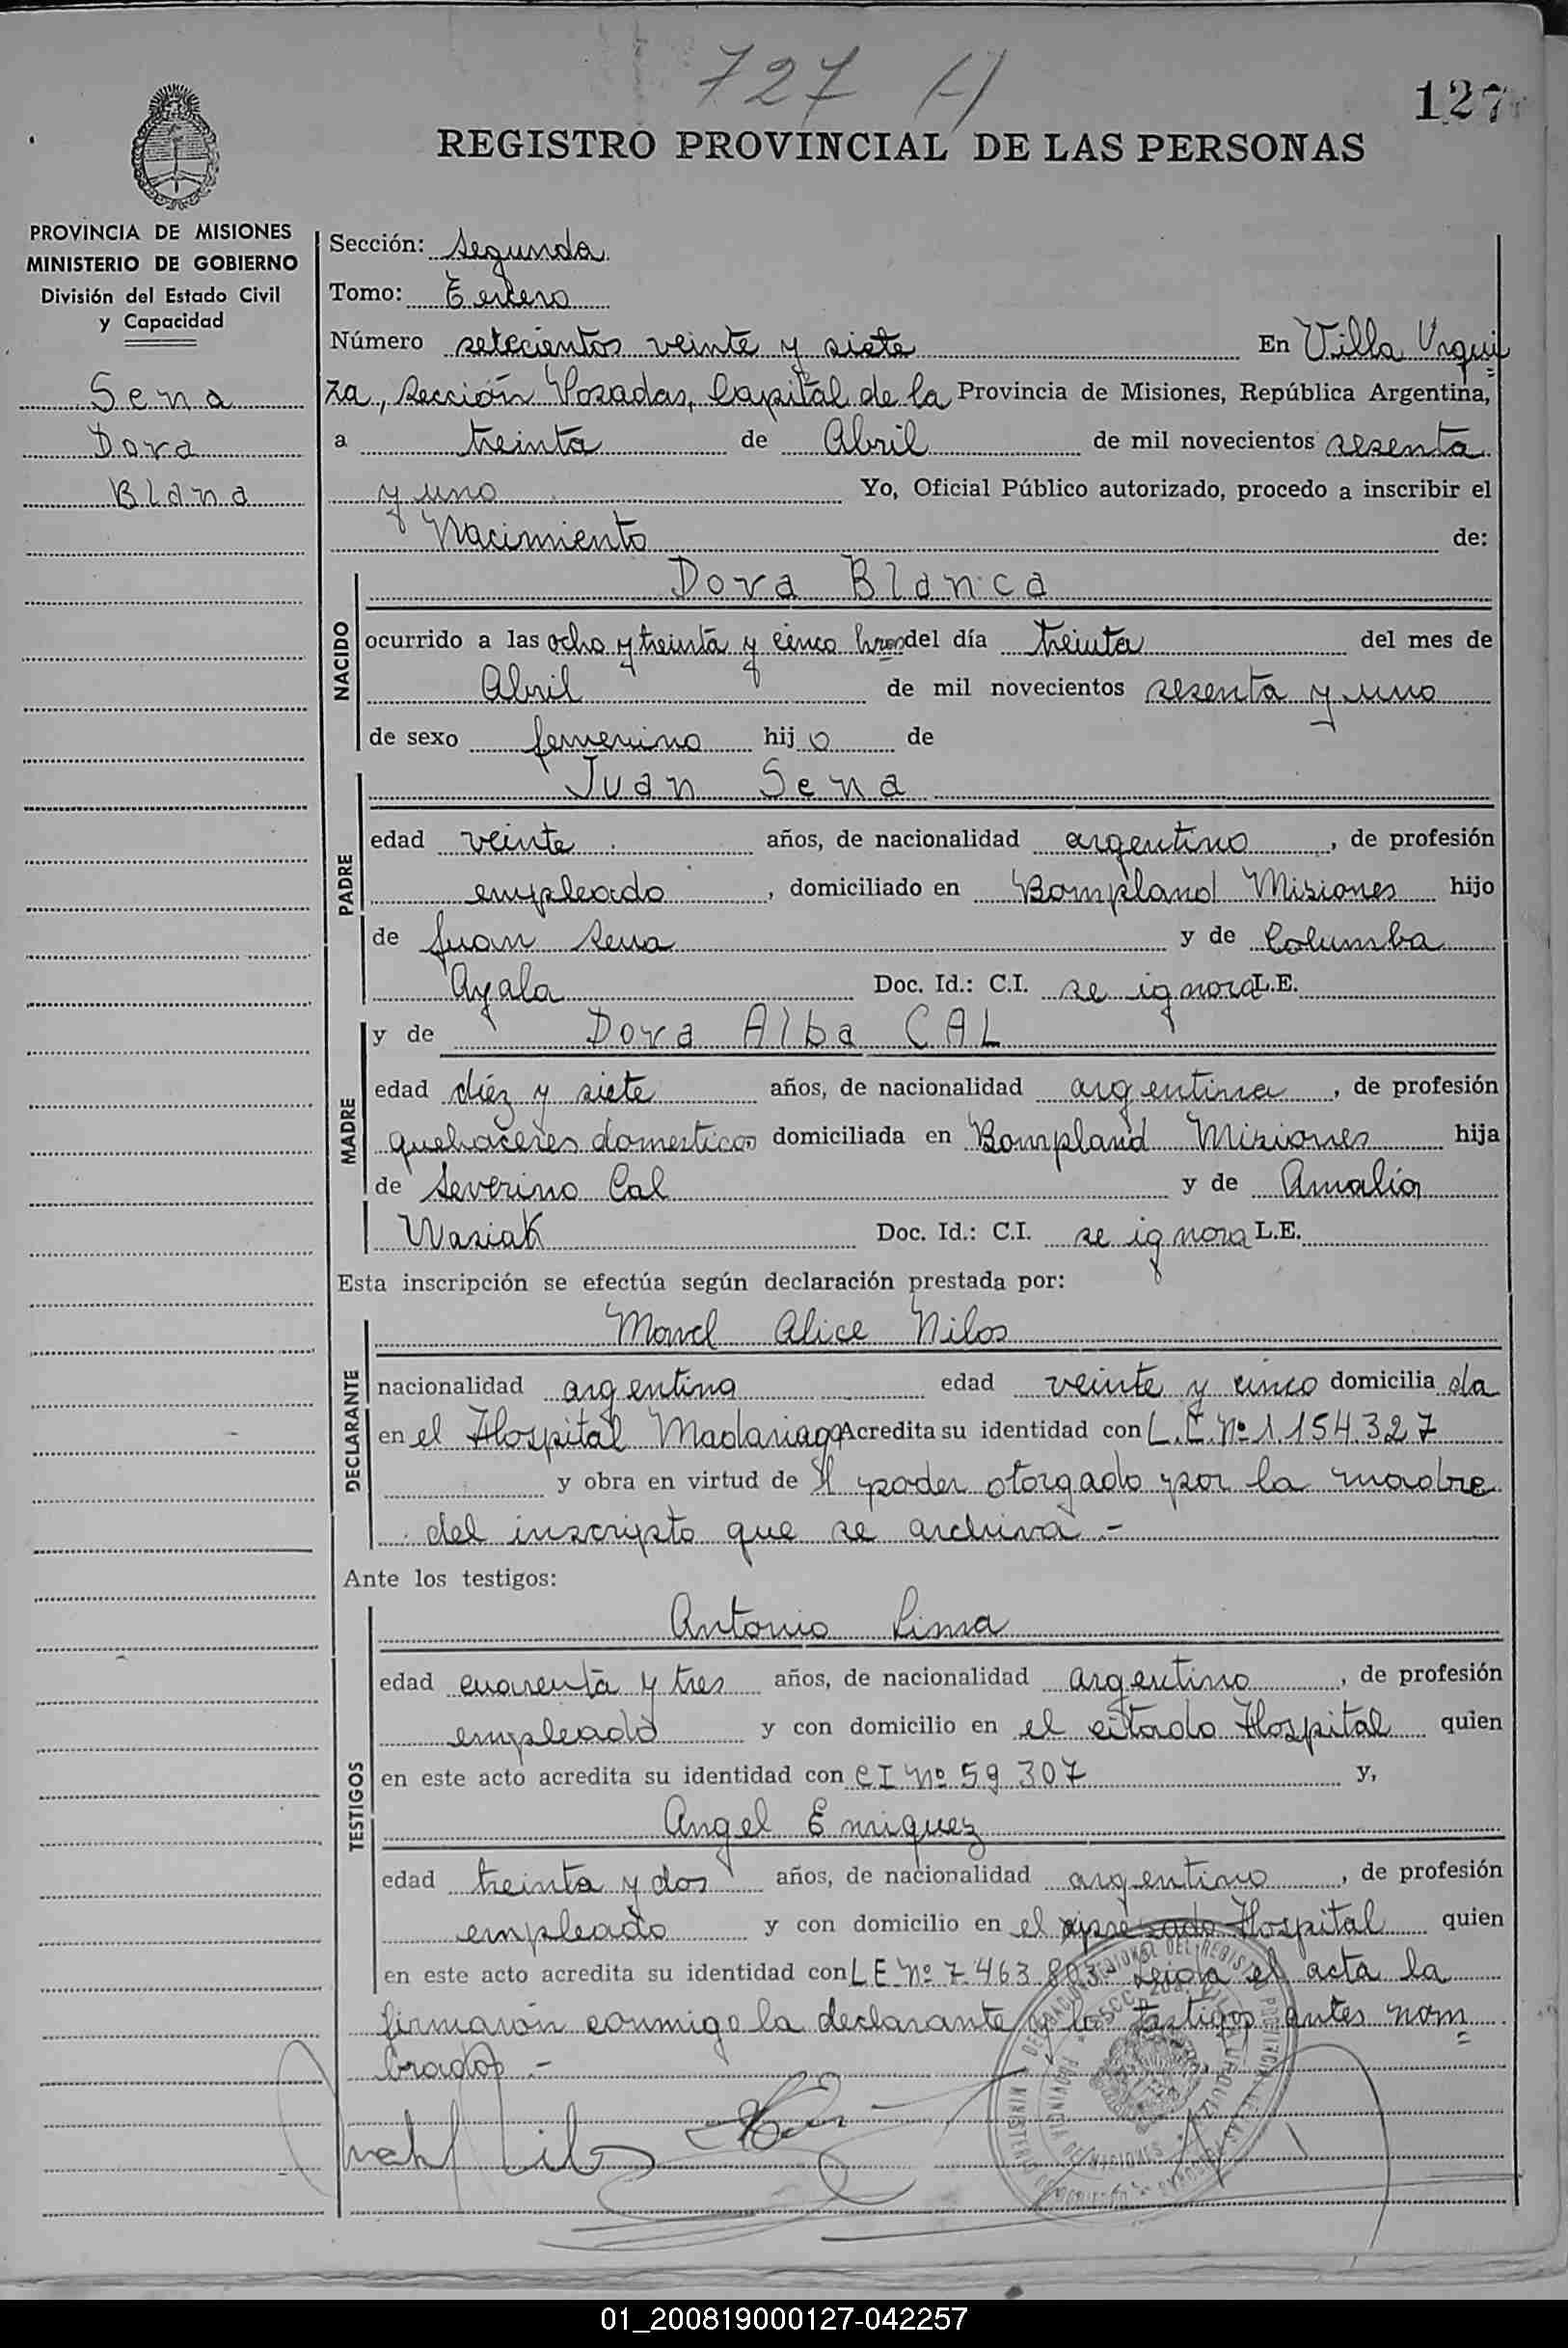 727 (-)
127
REGISTRO PROVINCIAL DE LAS PERSONAS
PROVINCIA DE MISIONES
MINISTERIO DE GOBIERNO
División del Estado Civil
y Capacidad
Sena
Dora
Blana
Sección: Segunda
Tomo: Tercero
Número setecientos veinte y siete En Villa Urqui=
za, Sección Posadas, Capital de la Provincia de Misiones, República Argentina,
a treinta de Abril de mil novecientos sesenta
y uno Yo, Oficial Público autorizado, procedo a inscribir el
Nacimiento de:
NACIDO
Dora Blanca
ocurrido a las ocho y treinta y cinco hras del día treinta del mes de
Abril de mil novecientos sesenta y uno
de sexo femenino hij o de
PADRE
Juan Sena
edad veinte años, de nacionalidad argentino, de profesión
empleado, domiciliado en Bompland Misiones hijo
de Juan Sena y de Columba
Ayala Doc. Id.: C.I. se ignora L.E.
MADRE
y de Dora Alba CAL
edad diéz y siete años, de nacionalidad argentina, de profesión
quehaceres domesticos domiciliada en Bompland Misiones hija
de Severino Cal y de Amalia
Wasiak Doc. Id.: C.I. se ignora L.E.
Esta inscripción se efectúa según declaración prestada por:
DECLARANTE
Alice Nilos
nacionalidad argentina edad veinte y cinco domicilia da
en el Hospital Madariaga Acredita su identidad con L.C. Nº 1.154.327
y obra en virtud de el poder otorgado por la madre
del inscripto que se archiva.-
Ante los testigos:
TESTIGOS
Antonio Lima
edad cuarenta y tres años, de nacionalidad argentino, de profesión
empleado y con domicilio en el citado Hospital quien
en este acto acredita su identidad con CI Nº 59 307 y,
Angel Enriquez
edad treinta y dos años, de nacionalidad argentino, de profesión
empleado y con domicilio en el Hospital quien
en este acto acredita su identidad con LE Nº 7 463 803. Leida el acta la
firmaron conmigo la declarante y los testigos antes nom=
brados.-
01_200819000127-042257